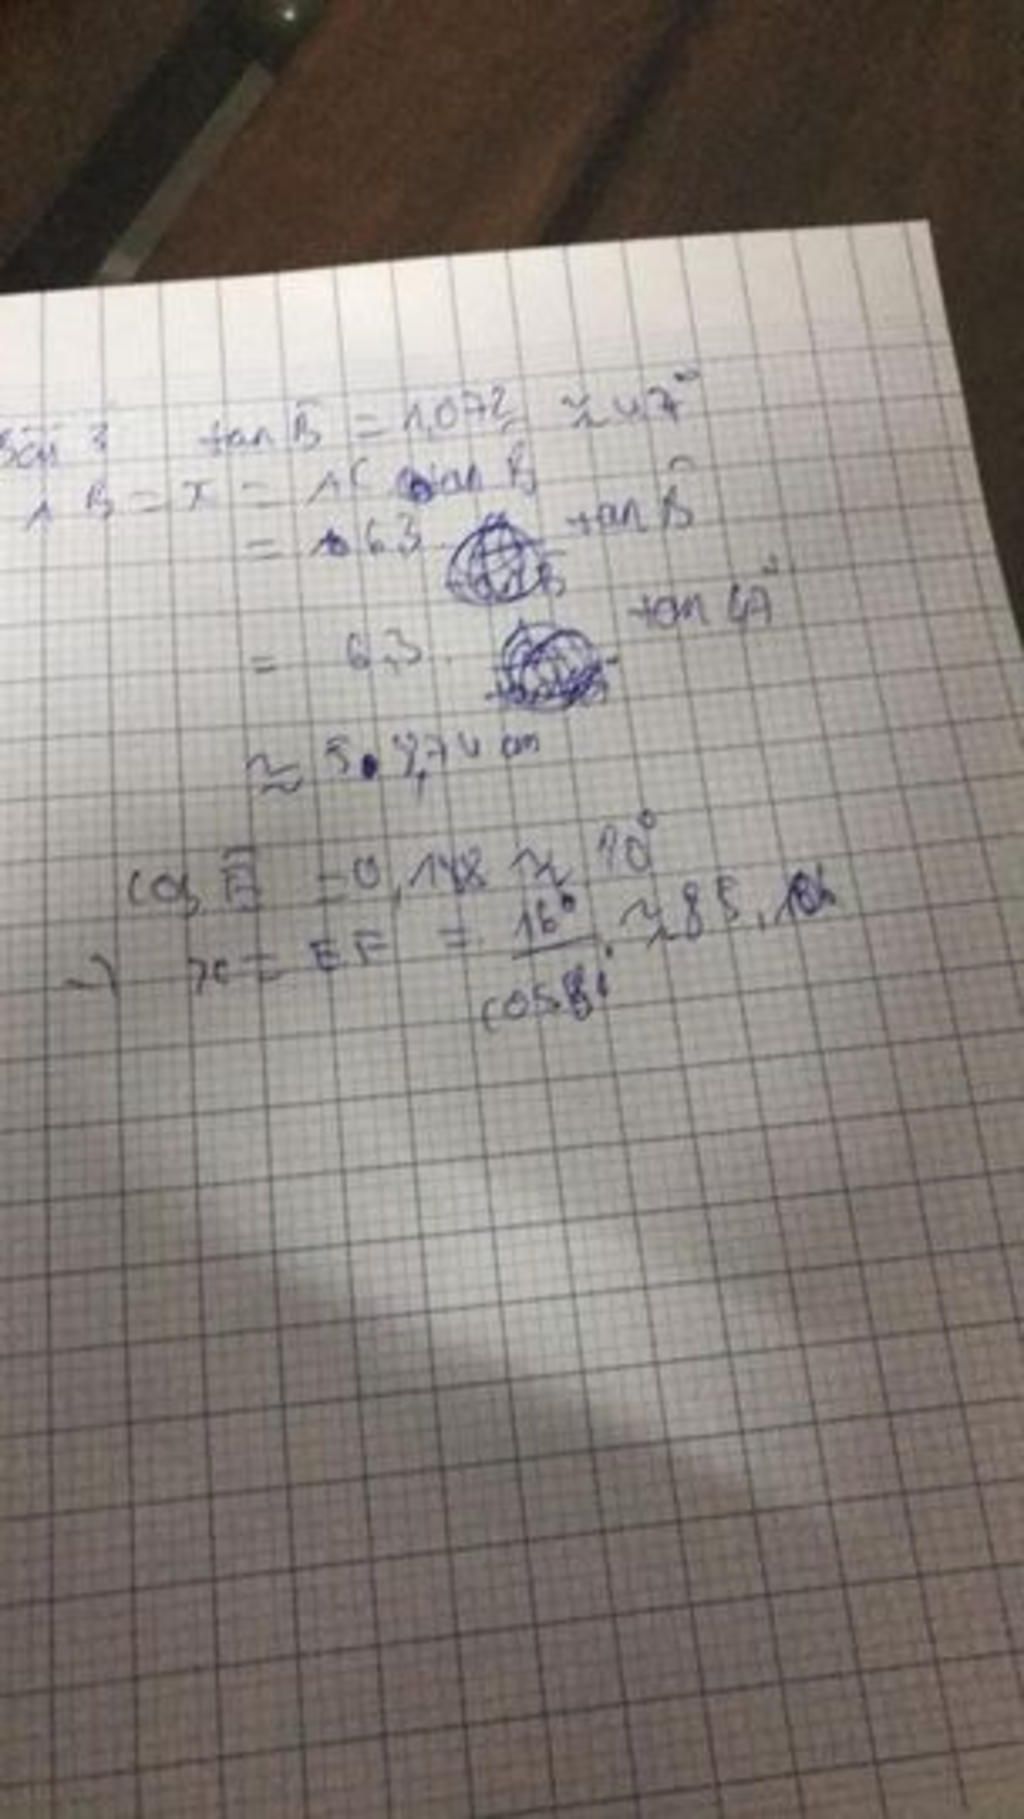 Bài 3 tan B̂ = 1,072 ≈ 47°
AB = x = AC tan B
= 63 tan B̂
= 6,3. tan 47°
≈ cm
cos Ê = 0,148 ≈
→ x = EF = 16° / cos 81° ≈ 85,